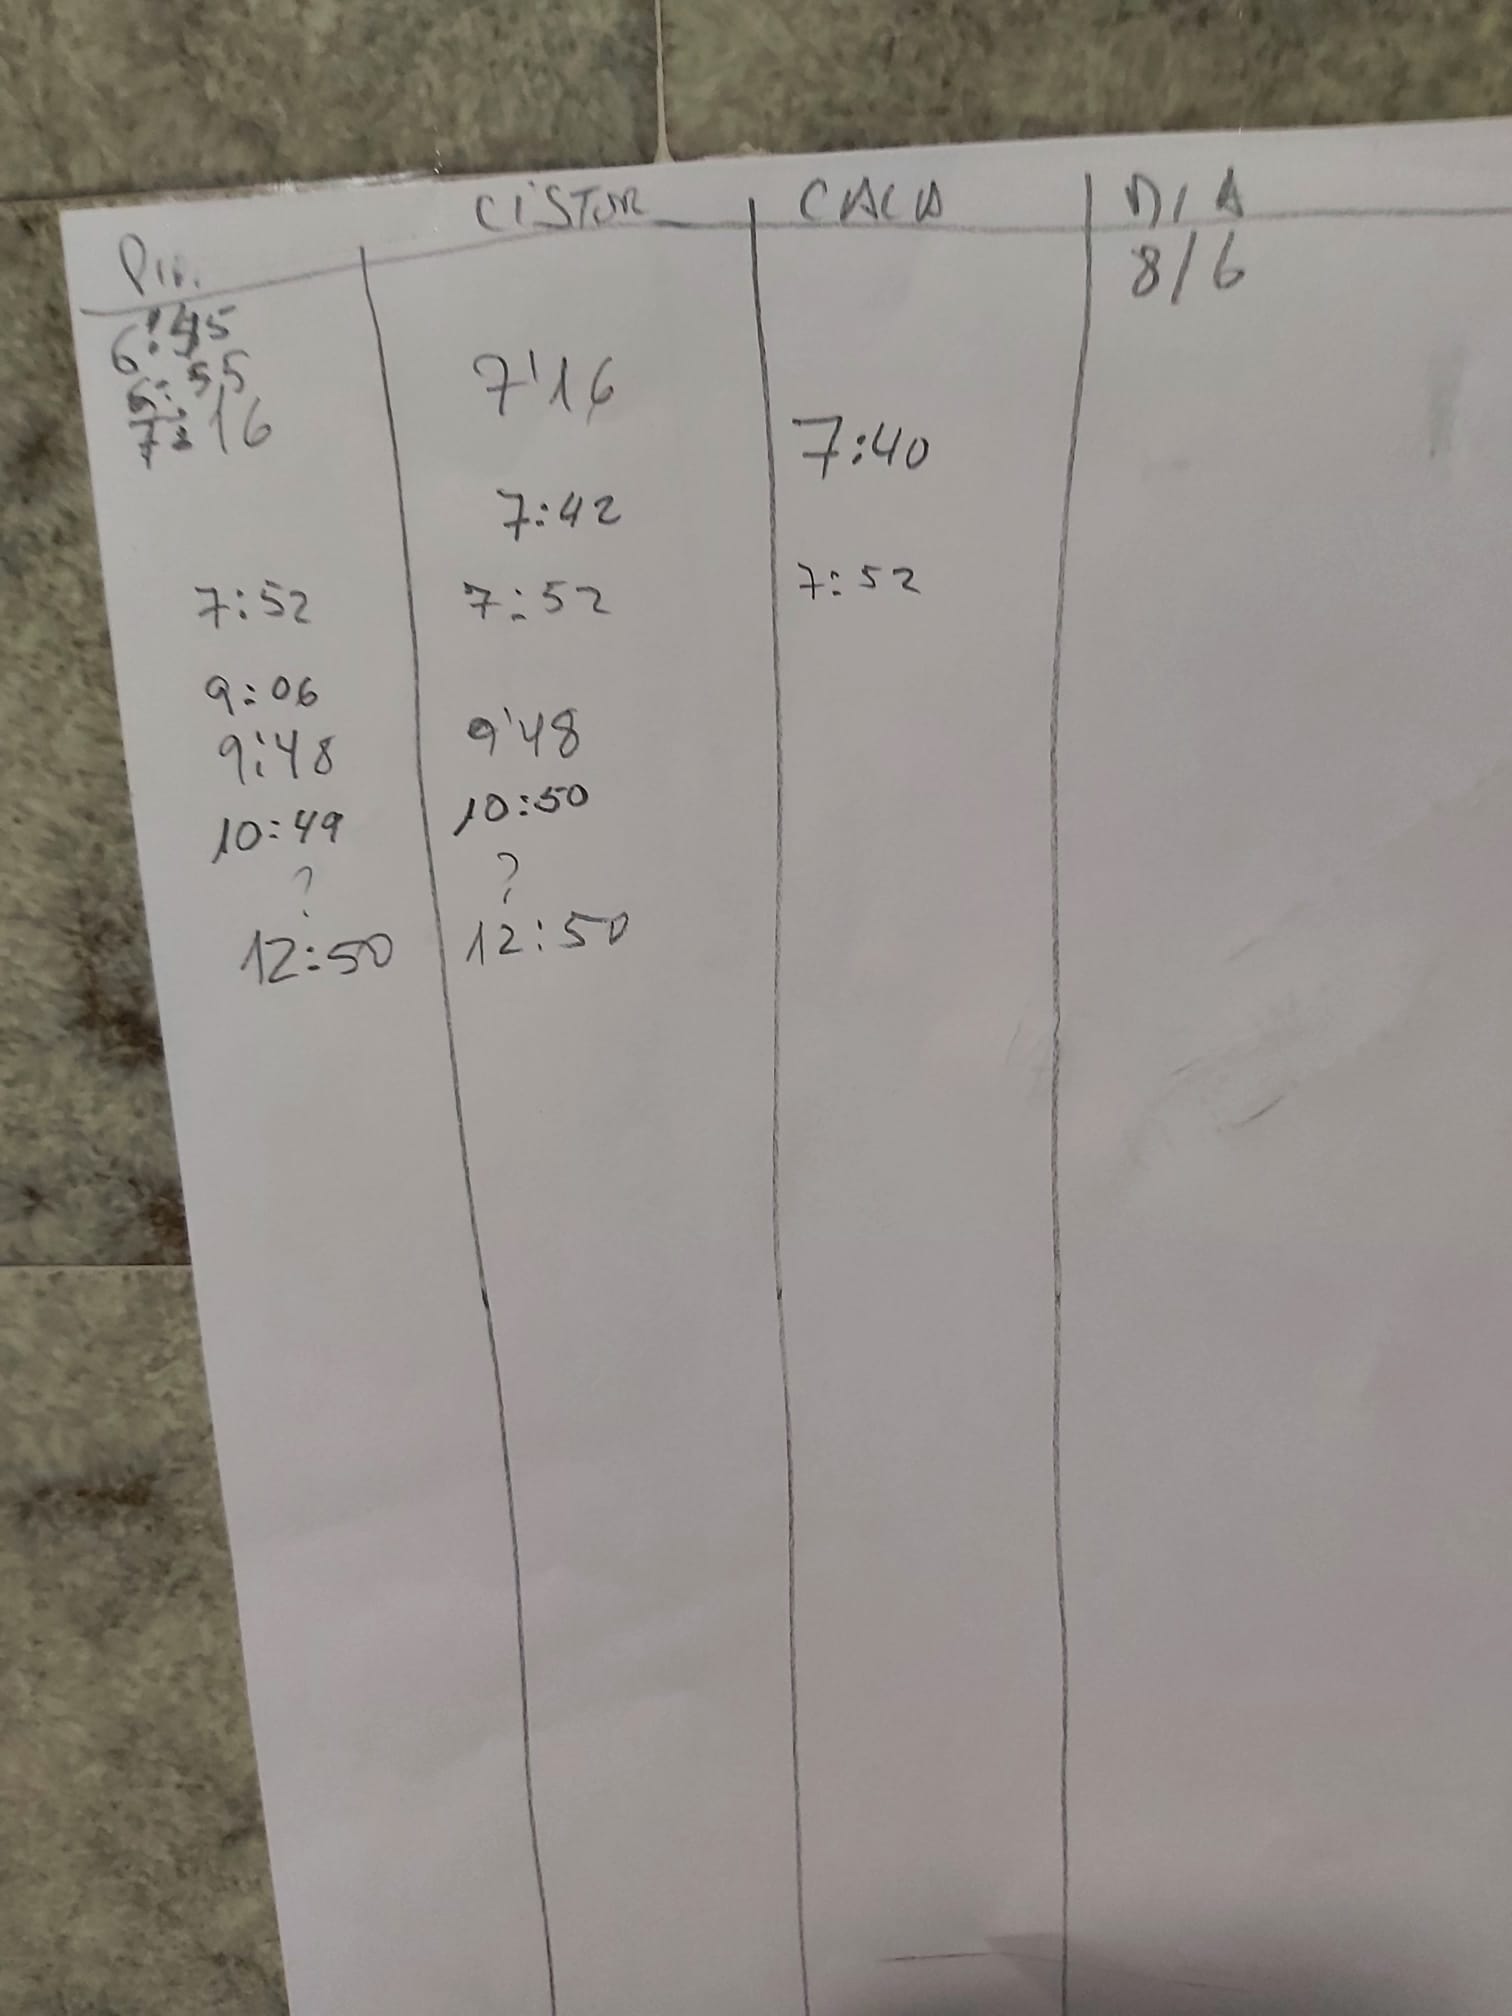 CISTER CACA DIA
Pip.
8/6
6:45
6:55
7:16 7'16
7:40
7:42
7:52 7:52 7:52
9:06
9:48 9'48
10:49 10:50
? ?
12:50 12:50